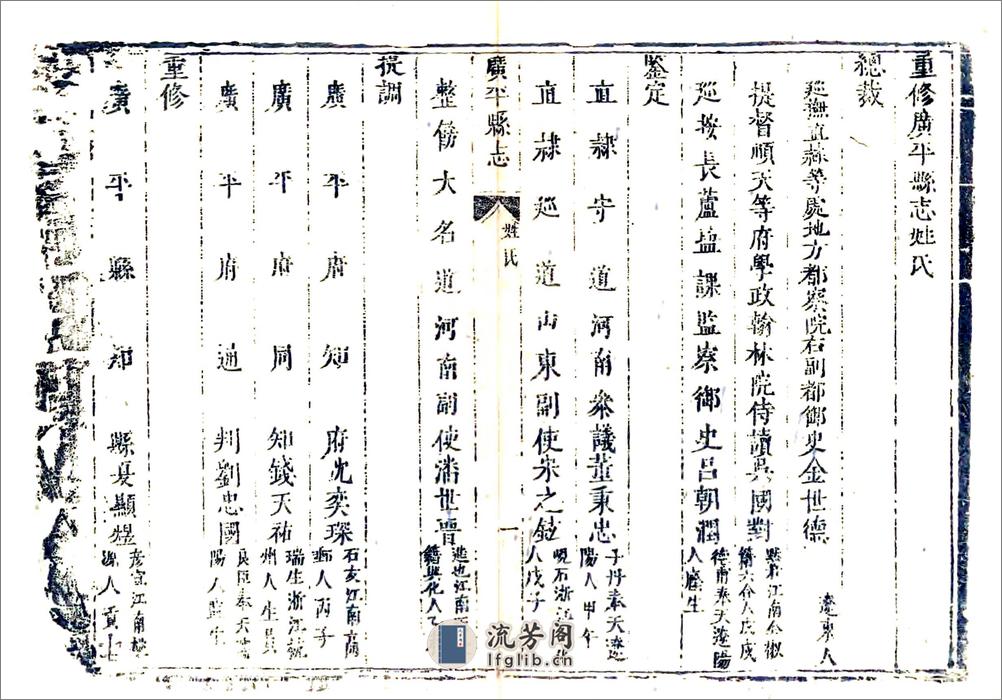 重修廣平縣志姓氏
總裁
巡撫直隸等處地方都察院右副都御史金世德 遼東人
提督順天等府學政翰林院侍讀吳國對 江南全椒籍六合人戊戌
巡按長蘆塩課監察御史呂朝㵎 德甫奉天遼陽人廕生
鑒定
直隷守道河南叅議董秉忠 子丹奉天遼陽人甲午
直隷巡道山東副使宋之鋐 硯石浙江人戊子
廣平縣志 姓氏 一
整飭大名道河南副使潘世晋 進也江南籍興化人
提調
廣平府知府沈奕琛 石友江南高人丙子
廣平府同知錢天祐 瑞生浙江杭州人生員
廣平府通判劉忠國 良臣奉天遼陽人廕生
重修
廣平縣知縣夏顯煜 彦宣江南人貢士
流芳阁
lfglib.cn